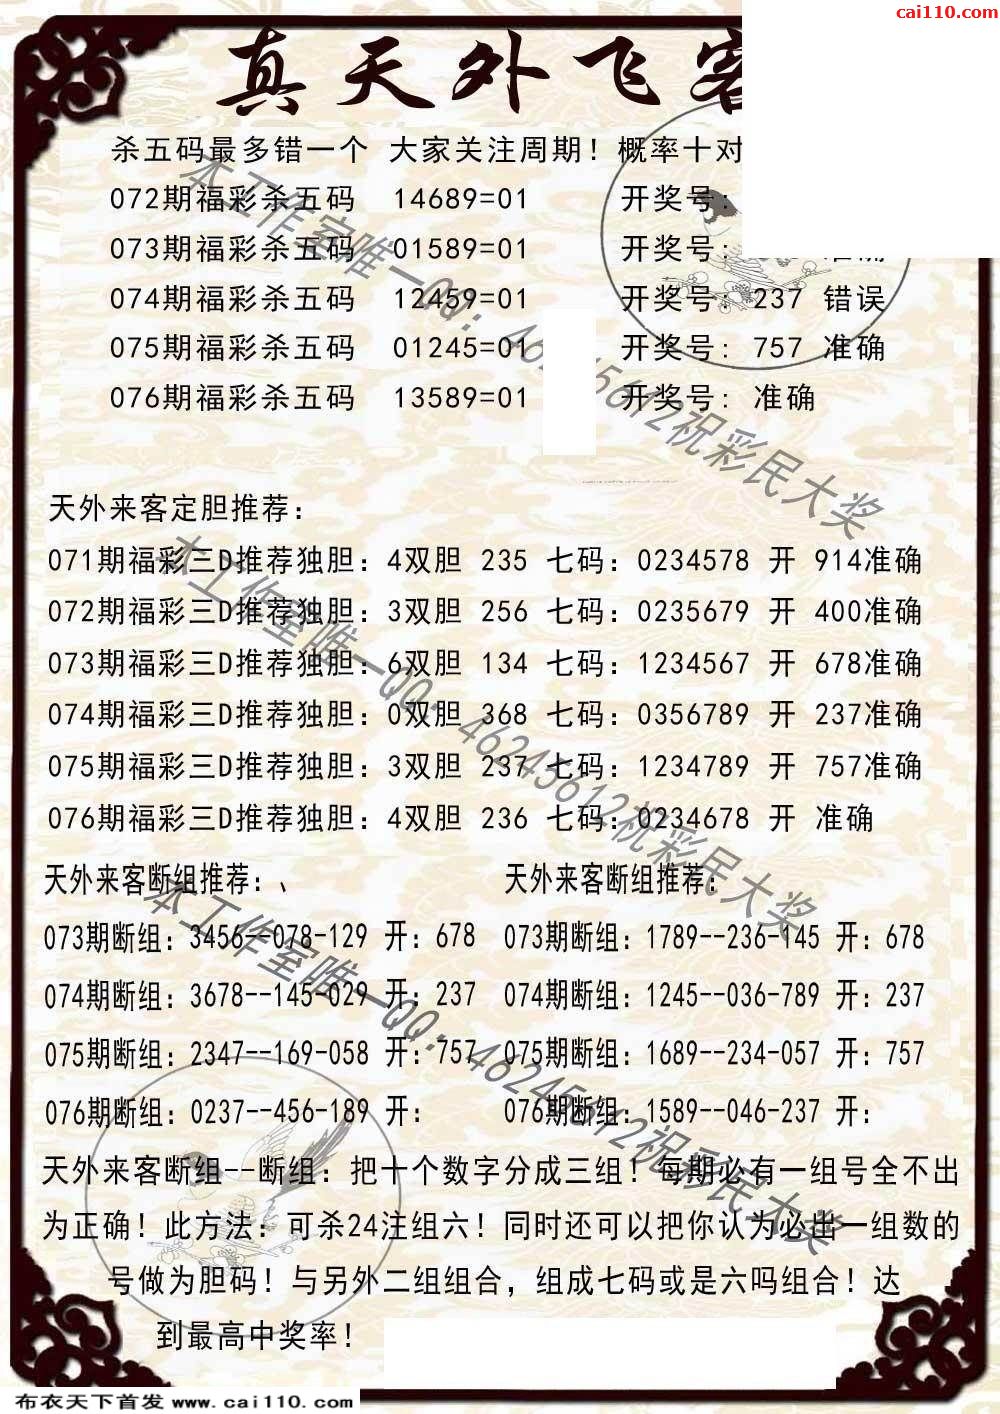 cai110.com
真天外飞客
杀五码最多错一个 大家关注周期！概率十对
072期福彩杀五码 14689=01 开奖号:
073期福彩杀五码 01589=01 开奖号: 准确
074期福彩杀五码 12459=01 开奖号: 237 错误
075期福彩杀五码 01245=01 开奖号: 757 准确
076期福彩杀五码 13589=01 开奖号: 准确
天外来客定胆推荐:
071期福彩三D推荐独胆: 4双胆 235 七码: 0234578 开 914准确
072期福彩三D推荐独胆: 3双胆 256 七码: 0235679 开 400准确
073期福彩三D推荐独胆: 6双胆 134 七码: 1234567 开 678准确
074期福彩三D推荐独胆: 0双胆 368 七码: 0356789 开 237准确
075期福彩三D推荐独胆: 3双胆 237 七码: 1234789 开 757准确
076期福彩三D推荐独胆: 4双胆 236 七码: 0234678 开 准确
天外来客断组推荐: 、 天外来客断组推荐:
073期断组: 3456--078-129 开: 678 073期断组: 1789--236-145 开: 678
074期断组: 3678--145-029 开: 237 074期断组: 1245--036-789 开: 237
075期断组: 2347--169-058 开: 757 075期断组: 1689--234-057 开: 757
076期断组: 0237--456-189 开: 076期断组: 1589--046-237 开:
天外来客断组--断组: 把十个数字分成三组！每期必有一组号全不出
为正确！此方法: 可杀24注组六！同时还可以把你认为必出一组数的
号做为胆码！与另外二组组合, 组成七码或是六吗组合！达
到最高中奖率！
本工作室唯一QQ: 46245612祝彩民大奖
本工作室唯一QQ: 46245612祝彩民大奖
本工作室唯一QQ: 46245612祝彩民大奖
布衣天下首发 www.cai110.com